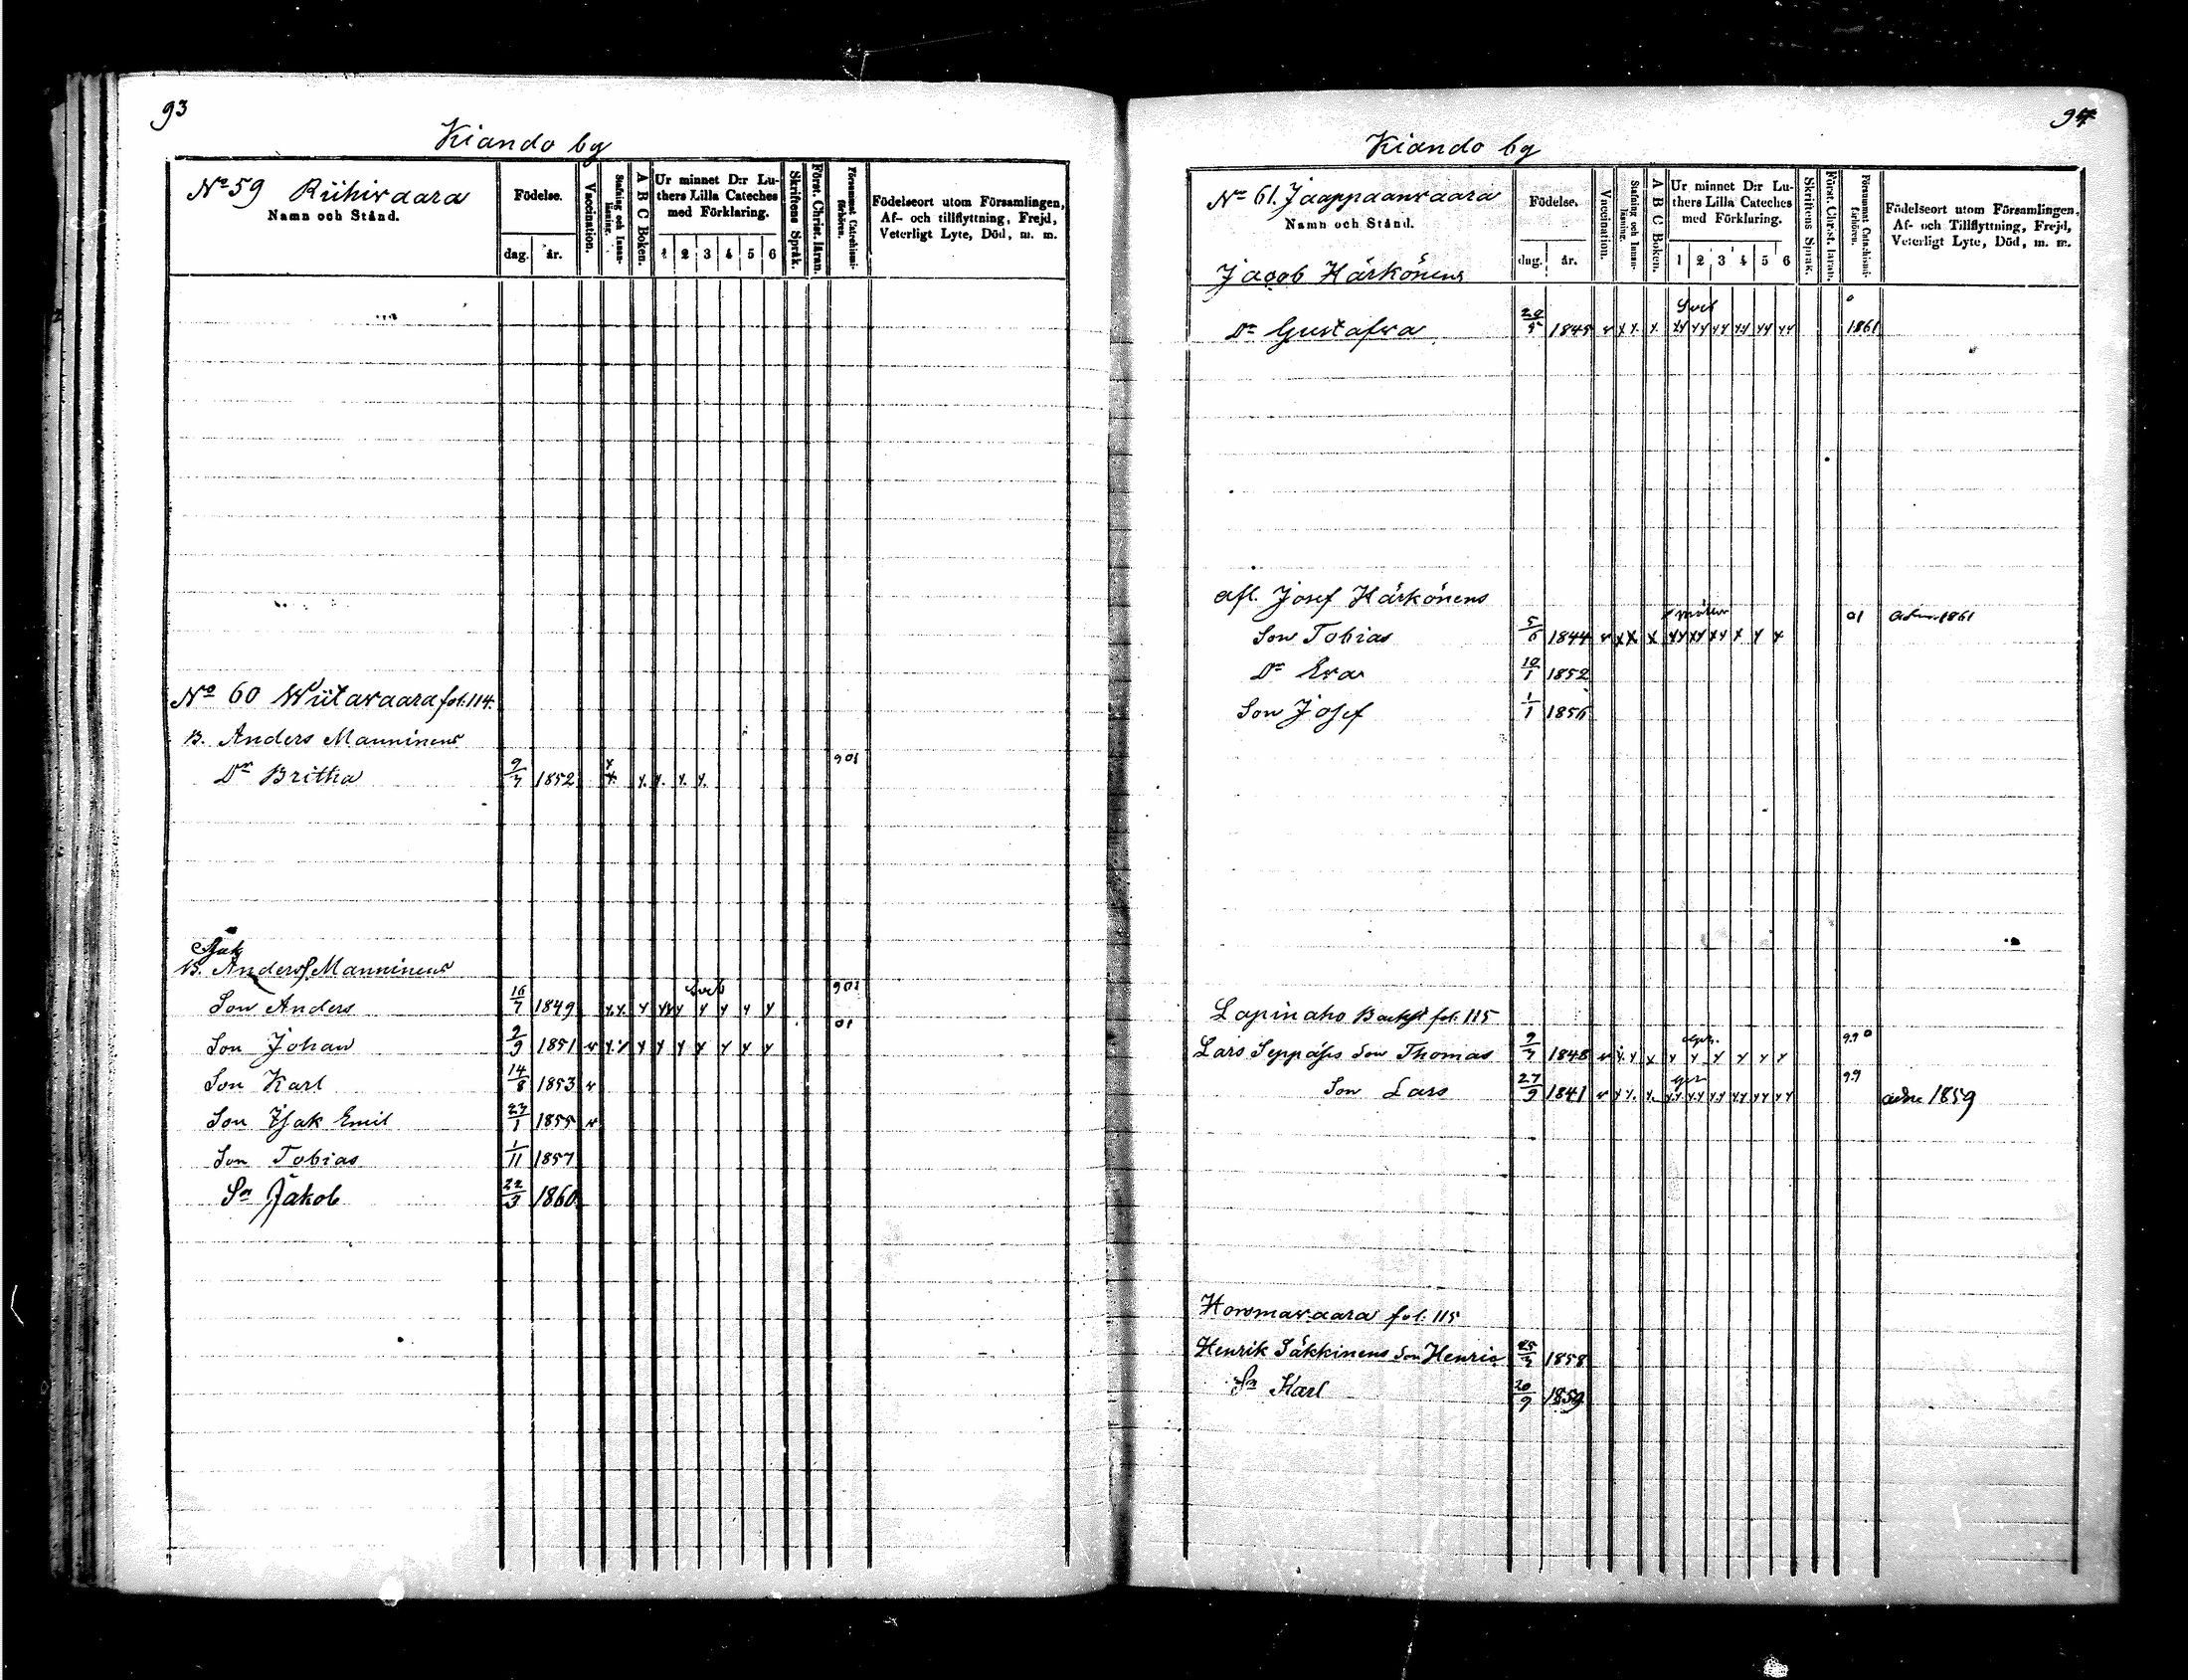 93
Kiando by
No 59 Riihivaara
Namn och Stånd.
Födelse.
dag. år.
Vaccination.
Stafning och Innanläsning.
A B C Boken.
Ur minnet D:r Luthers Lilla Cateches med Förklaring.
1 2 3 4 5 6
Skriftens Språk.
Först. Christ. läran.
Försummat Catechismiförhören.
Födelseort utom Församlingen, Af- och tillflyttning, Frejd, Veterligt Lyte, Död, m. m.
No 60 Wiitavaara fol. 114.
B. Anders Manninens
Dr Britha 9/7 1852 x x x. x. x. x. 901
Isak
B. Anders Manninens
Son Anders 16/7 1849 x x x xxx x x x x 901
Son Johan 2/9 1851 v x x x x x x x x x 01
Son Karl 14/8 1853 v
Son Isak Emil 23/1 1855 v
Son Tobias 1/11 1857
Sn Jakob 22/3 1860
94
Kiando by
No 61. Jaappaanvaara
Namn och Stånd.
Födelse.
dag. år.
Vaccination.
Stafning och Innanläsning.
A B C Boken.
Ur minnet D:r Luthers Lilla Cateches med Förklaring.
1 2 3 4 5 6
Skriftens Språk.
Först. Christ. läran.
Försummat Catechismiförhören.
Födelseort utom Församlingen, Af- och Tillflyttning, Frejd, Veterligt Lyte, Död, m. m.
Jacob Härkönens
Dr Gustafva 20/5 1845 v x x. x. xx xx xx xx xx xx 1861
afl. Josef Härkönens
Son Tobias 5/6 1844 v x x x xx xx xx x x x 01 adm. 1861
Dr Eva 10/1 1852
Son Josef 1/1 1856
Lapinaho Backst fol. 115
Lars Seppäss Son Thomas 9/7 1848 v x x x x x x x x x 990
Son Lars 27/9 1841 v x x. x. xx xx xx xx xx xx 99 adm 1859
Howmavaara fol. 115
Henrik Säkkinens Son Henric 25/3 1858
Sn Karl 20/9 1859